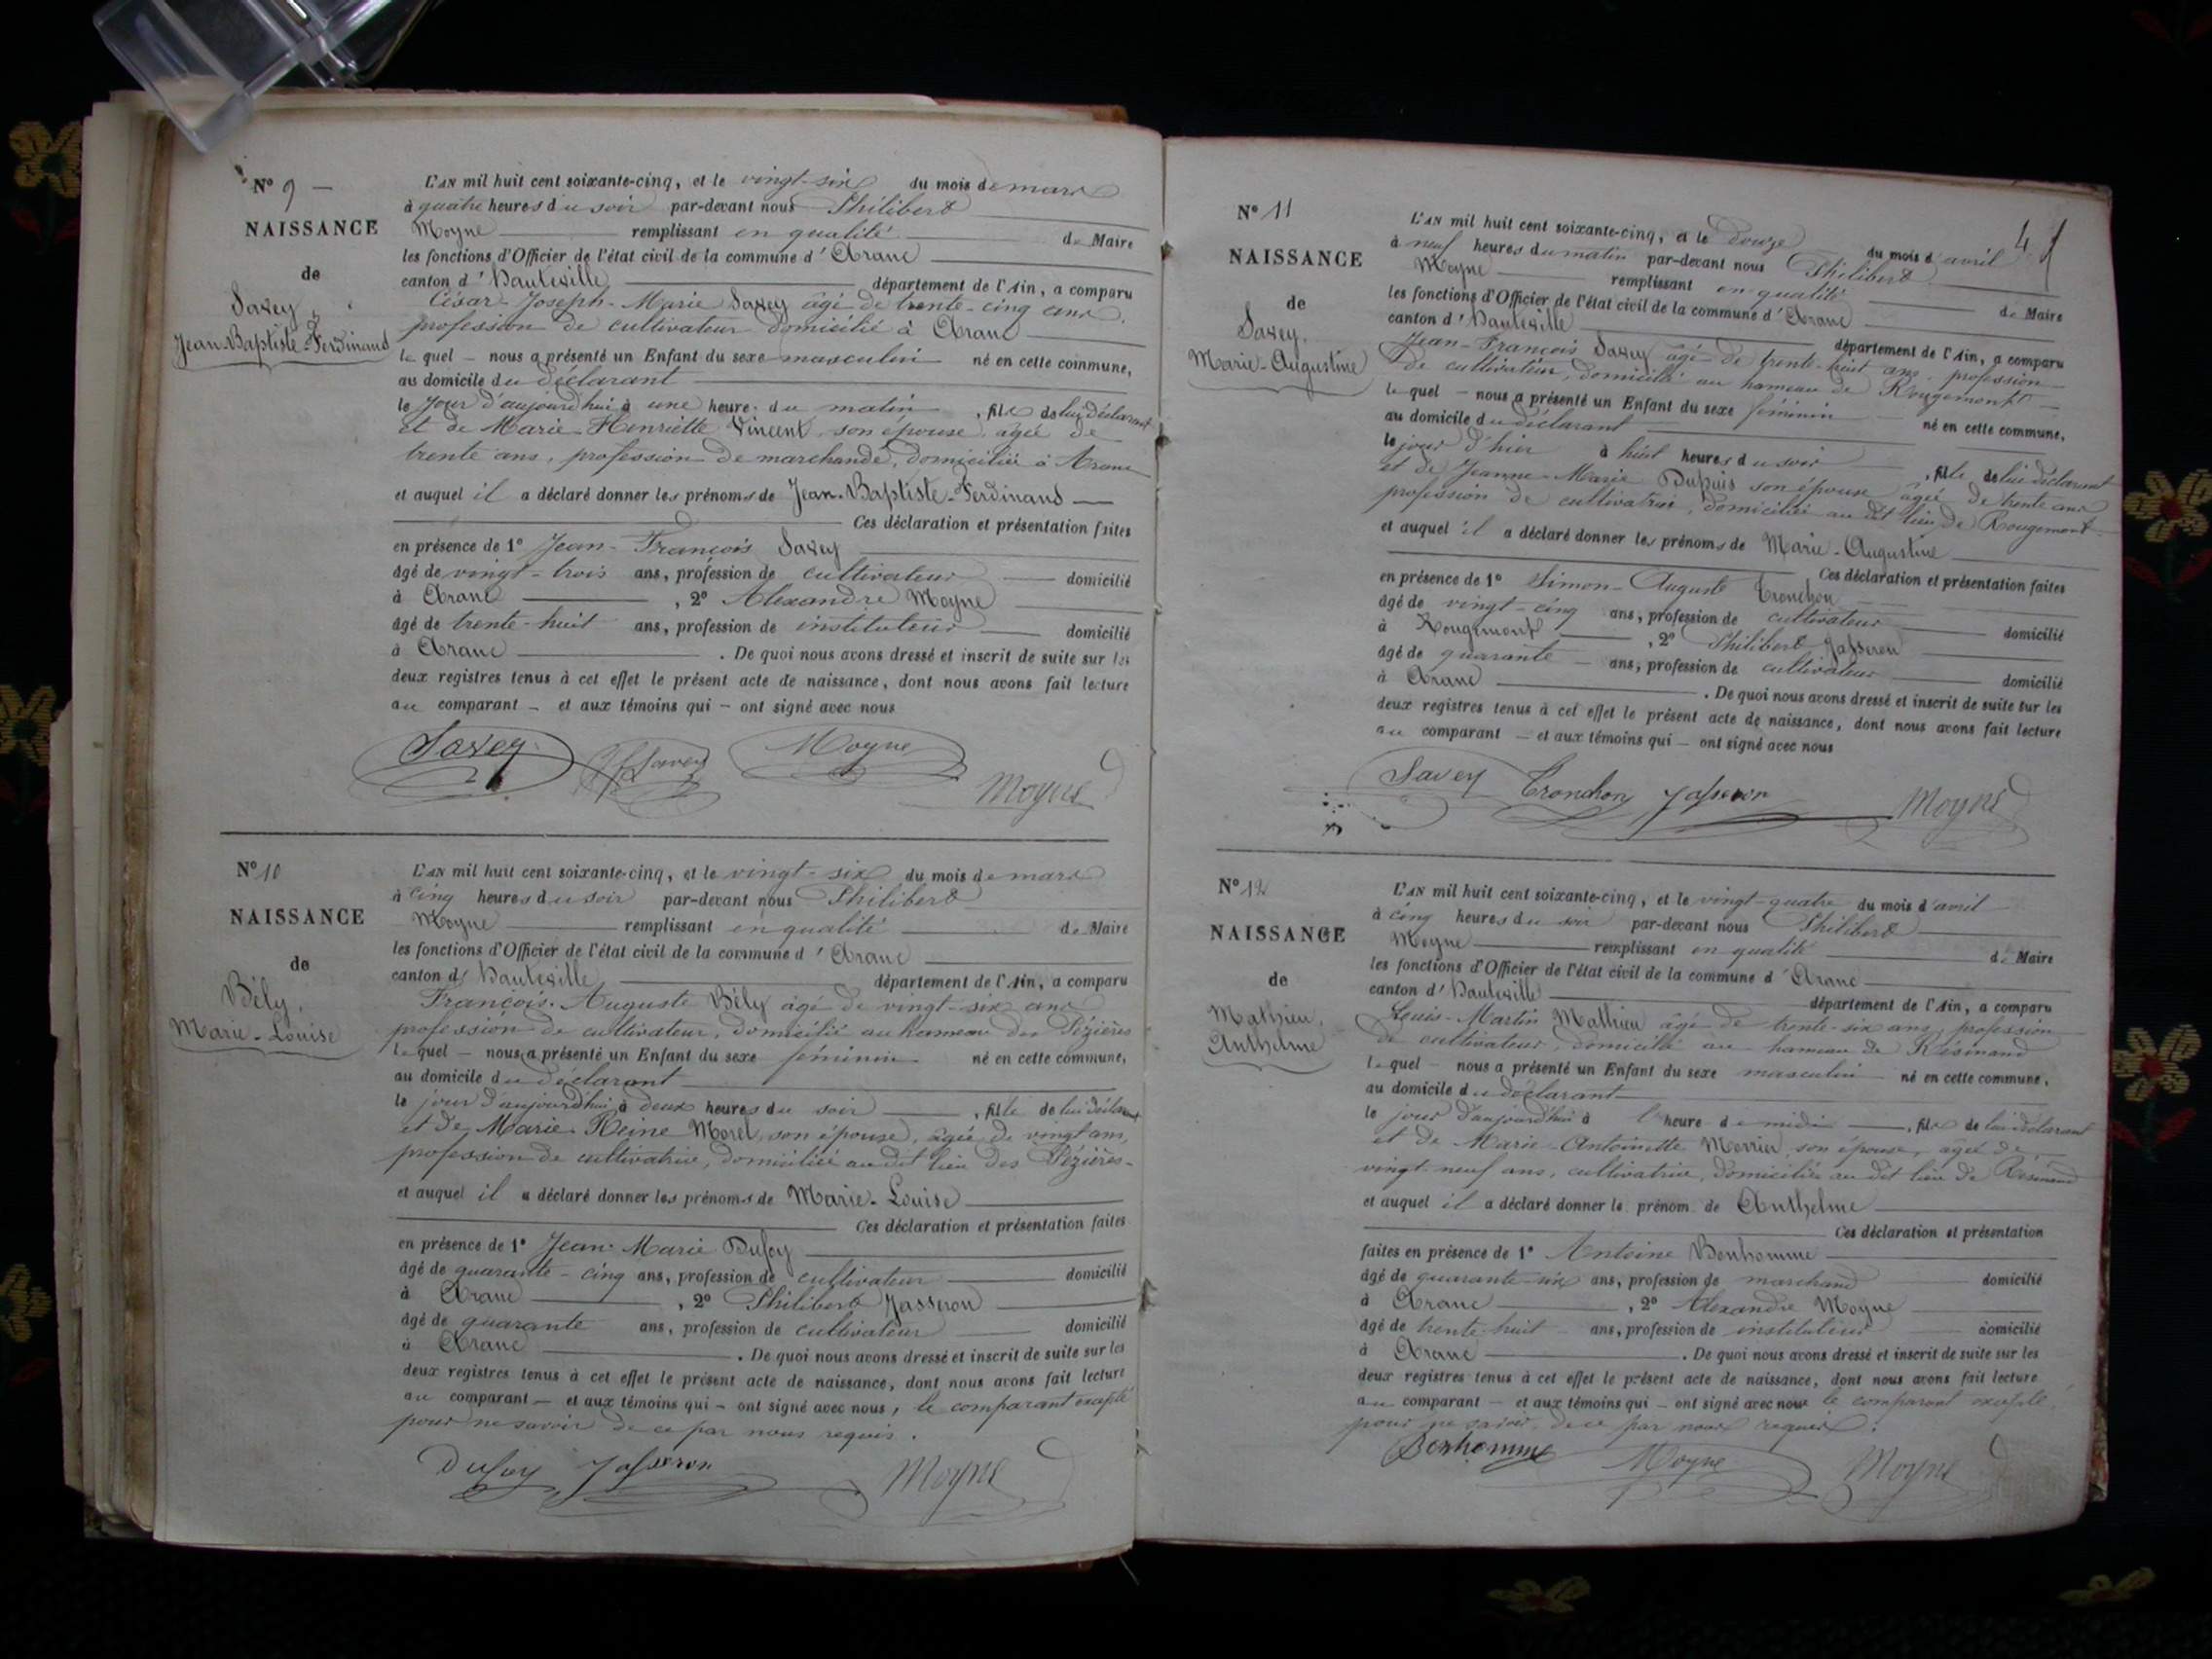 N° 9 —
NAISSANCE
de
Savey,
Jean-Baptiste-Ferdinand
L'AN mil huit cent soixante-cinq, et le vingt-six du mois de mars
à quatre heures du soir par-devant nous Philibert
Moyne remplissant en qualité de Maire
les fonctions d'Officier de l'état civil de la commune d'Aranc
canton d'Hauteville département de l'Ain, a comparu
César-Joseph-Marie Savey âgé de trente-cinq ans,
profession de cultivateur domicilié à Aranc
lequel — nous a présenté un Enfant du sexe masculin né en cette commune,
au domicile du déclarant
le jour d'aujourd'hui à une heure du matin, fils de lui déclarant
et de Marie-Henriette Vincent, son épouse, âgée de
trente ans, profession de marchande, domiciliée à Aranc
et auquel il a déclaré donner les prénoms de Jean-Baptiste-Ferdinand —
Ces déclaration et présentation faites
en présence de 1° Jean-François Savey
âgé de vingt-trois ans, profession de cultivateur domicilié
à Aranc, 2° Alexandre Moyne
âgé de trente-huit ans, profession de instituteur domicilié
à Aranc. De quoi nous avons dressé et inscrit de suite sur les
deux registres tenus à cet effet le présent acte de naissance, dont nous avons fait lecture
au comparant — et aux témoins qui — ont signé avec nous
Savey Savey Moyne
Moyne
N° 10
NAISSANCE
de
Bély,
Marie-Louise
L'AN mil huit cent soixante-cinq, et le vingt-six du mois de mars
à cinq heures du soir par-devant nous Philibert
Moyne remplissant en qualité de Maire
les fonctions d'Officier de l'état civil de la commune d'Aranc
canton d'Hauteville département de l'Ain, a comparu
François-Auguste Bély âgé de vingt-six ans
profession de cultivateur, domicilié au hameau des Pézières
lequel — nous a présenté un Enfant du sexe féminin né en cette commune,
au domicile du déclarant
le jour d'aujourd'hui à deux heures du soir, fille de lui déclarant
et de Marie-Reine Morel, son épouse, âgée de vingt ans,
profession de cultivatrice, domiciliée au dit lieu des Pézières-
et auquel il a déclaré donner les prénoms de Marie-Louise
Ces déclaration et présentation faites
en présence de 1° Jean-Marie Dufoy
âgé de quarante-cinq ans, profession de cultivateur domicilié
à Aranc, 2° Philibert Jasseron
âgé de quarante ans, profession de cultivateur domicilié
à Aranc. De quoi nous avons dressé et inscrit de suite sur les
deux registres tenus à cet effet le présent acte de naissance, dont nous avons fait lecture
au comparant — et aux témoins qui — ont signé avec nous, le comparant excepté
pour ne savoir de ce par nous requis.
Dufoy Jasseron Moyne
41
N° 11
NAISSANCE
de
Savey,
Marie-Augustine
L'AN mil huit cent soixante-cinq, et le douze du mois d'avril
à neuf heures du matin par-devant nous Philibert
Moyne remplissant en qualité de Maire
les fonctions d'Officier de l'état civil de la commune d'Aranc
canton d'Hauteville département de l'Ain, a comparu
Jean-François Savey âgé de trente-huit ans, profession
de cultivateur, domicilié au hameau de Rougemont —
lequel — nous a présenté un Enfant du sexe féminin né en cette commune,
au domicile du déclarant
le jour d'hier à huit heures du soir, fille de lui déclarant
et de Jeanne-Marie Dupuis son épouse âgée de trente ans
profession de cultivatrice, domiciliée au dit lieu de Rougemont
et auquel il a déclaré donner les prénoms de Marie-Augustine
Ces déclaration et présentation faites
en présence de 1° Simon-Auguste Tronchon
âgé de vingt-cinq ans, profession de cultivateur domicilié
à Rougemont, 2° Philibert Jasseron
âgé de quarante — ans, profession de cultivateur domicilié
à Aranc. De quoi nous avons dressé et inscrit de suite sur les
deux registres tenus à cet effet le présent acte de naissance, dont nous avons fait lecture
au comparant — et aux témoins qui — ont signé avec nous
Savey Tronchon Jasseron Moyne
N° 12
NAISSANCE
de
Mathieu,
Anthelme
L'AN mil huit cent soixante-cinq, et le vingt-quatre du mois d'avril
à cinq heures du soir par-devant nous Philibert
Moyne remplissant en qualité de Maire
les fonctions d'Officier de l'état civil de la commune d'Aranc
canton d'Hauteville département de l'Ain, a comparu
Louis-Martin Mathieu âgé de trente-six ans, profession
de cultivateur, domicilié au hameau de Résinand
lequel — nous a présenté un Enfant du sexe masculin né en cette commune,
au domicile du déclarant
le jour d'aujourd'hui à l'heure de midi, fils de lui déclarant
et de Marie-Antoinette Merrier, son épouse, âgée de
vingt-neuf ans, cultivatrice, domiciliée au dit lieu de Résinand
et auquel il a déclaré donner le prénom de Anthelme
Ces déclaration et présentation
faites en présence de 1° Antoine Bonhomme
âgé de quarante-six ans, profession de marchand domicilié
à Aranc, 2° Alexandre Moyne
âgé de trente-huit ans, profession de instituteur domicilié
à Aranc. De quoi nous avons dressé et inscrit de suite sur les
deux registres tenus à cet effet le présent acte de naissance, dont nous avons fait lecture
au comparant — et aux témoins qui — ont signé avec nous le comparant excepté
pour ne savoir, de ce par nous requis.
Bonhomme Moyne Moyne